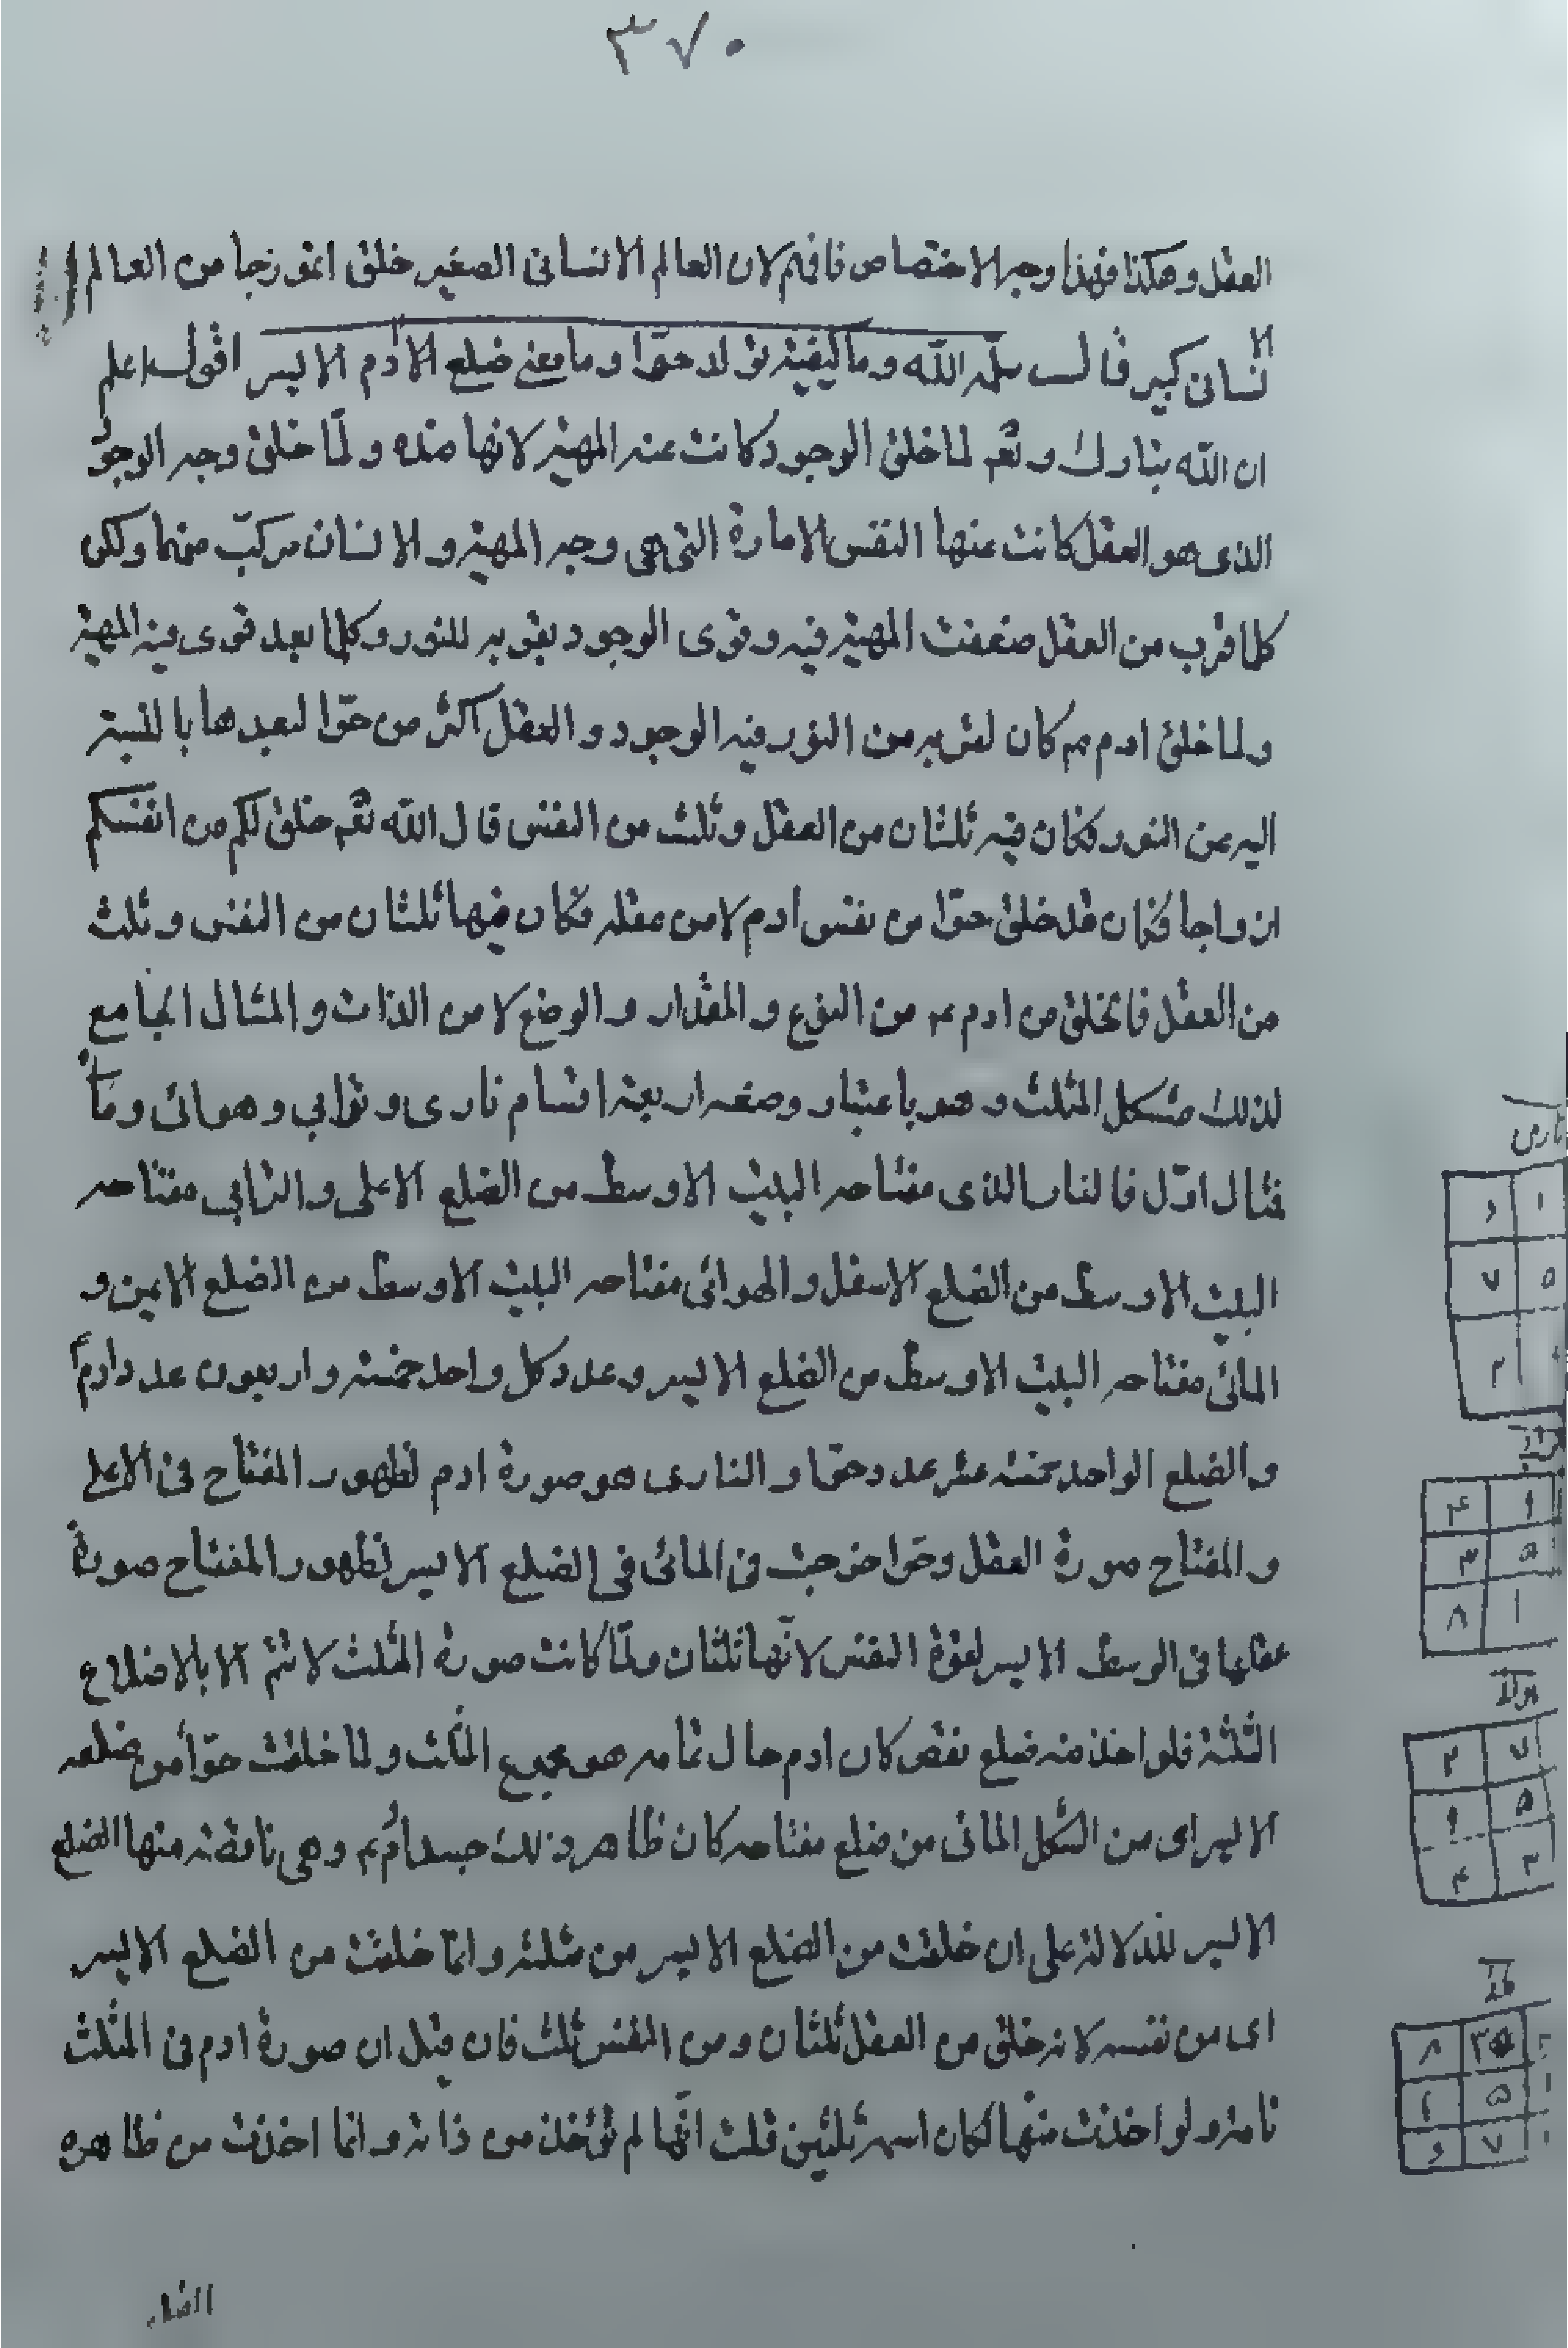 ٣٧٠
العقل وهكذا فهذا وجه الاختصاص فافهم لان العالم الانسانى الصغير خلق انموزجا من العالم
الانسان كبير قال سلمه الله وما كيفية تولد حوّا وما معنى ضلع الادم الايسر اقول اعلم
ان الله تبارك وتعم لما خلق الوجود كانت عنه المهية لانها ضده ولمّا خلق وجه الوجود
الذى هو العقل كانت عنها النفس الامارة التى هى وجه المهية والانسان مركبّ منهما ولكن
كلما قرب من العقل ضعفت المهية فيه وقوى الوجود بقربه للنور وكلما بعد قوى فيه المهية
ولما خلق ادم عم كان لقربه من النور فيه الوجود والعقل اكثر من حوّا لبعدها بالنسبة
اليه من النور فكان فيه ثلثان من العقل وثلث من النفس قال الله تعم خلق لكم من انفسكم
ازواجا فكان قد خلق حوّا من نفس ادم لا من عقله فكان فيها ثلثان من النفس وثلث
من العقل فانخلق من ادم عم من النوع والمقدار والوضع لا من الذات والمثال الجامع
لذلك شكل المثلث وهو باعتبار وضعه اربعة اقسام نارى وترابى وهوائى ومائى
مثال اوّل فالنار الذى مفتاحه البيت الاوسط من الضلع الاعلى والترابى مفتاحه
البيت الاوسط من الضلع الاسفل والهوائى مفتاحه البيت الاوسط من الضلع الايمن و
المائى مفتاحه البيت الاوسط من الضلع الايسر وعدد كل واحد خمسة واربعون عدد ادم
والضلع الواحد خمسة عشر عدد حوّا والنارى هو صورة ادم لظهور المفتاح فى الاعلى
والمفتاح صورة العقل وحوّا خرجت فى المائى فى الضلع الايسر لظهور المفتاح صورة
عقلها فى الوسط الايسر لقوة النفس لانّها ثلثان ولمّا كانت صورة المثلث لا تتم الا بالاضلاع
الثلثة فلو اخذ منه ضلع نقص كان ادم حال تمامه هو مجموع المثلث ولما خلقت حوّا من ضلعه
الايسر اى من الشكل المائى من ضلع مفتاحه كان ظاهر ذلك جسد ادم عم وهى ناقصة منها الضلع
الايسر للدلالة على ان خلقت من الضلع الايسر من مثلثه وانّما خلقت من الضلع الايسر
اى من نفسه لانه خلق من العقل ثلثان ومن النفس ثلث فان قيل ان صورة ادم فى المثلث
تامة ولو اخذت منها لكان اسمه ثلثين قلت انّها لم تؤخذ من ذاته وانما اخذت من ظاهره
نارى
١ ٦
٥ ٧
٢
٩ ۴
٥ ٣
١ ٨
٧ ٢
٥ ٩
٣ ۴
٨
٥ ١
٧ ٦